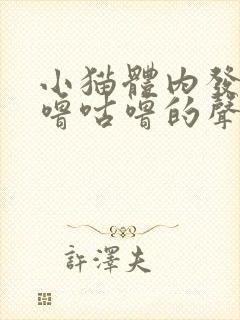 小猫體内發
嚕咕嚕的聲
許澤夫